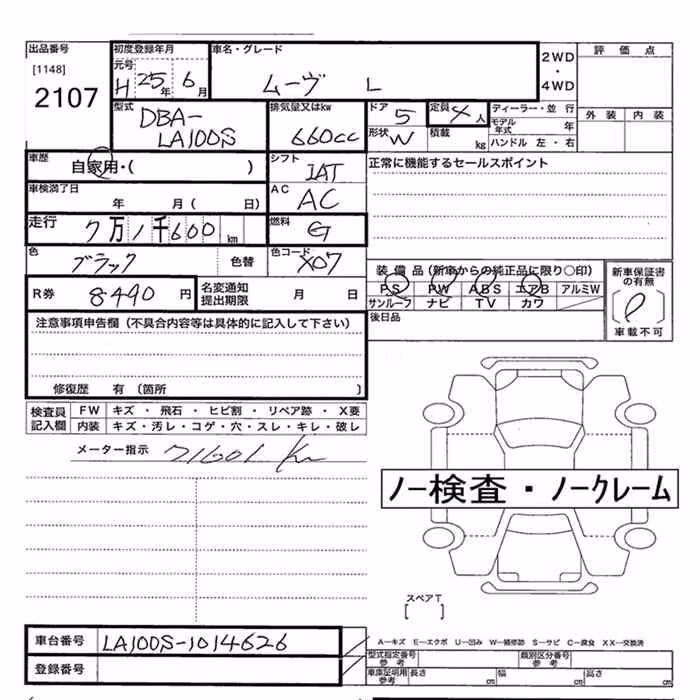 出品番号 初度登録年月 車名・グレード 2WD・4WD 評価点
[1148] 元号
2107 H 25年 6月 ムーヴ L
外装 内装
型式 排気量又はkw ドア 5 定員 4人 ディーラー・並行
DBA-
LA100S 660cc 形状 W 積載 kg モデル年式 年
ハンドル 左・右
車歴 自家用・( ) シフト IAT 正常に機能するセールスポイント
車検満了日 年 月( 日) AC AC
走行 7万1千600km 燃料 G
色 ブラック 色替 色コード X07
装備品(新車からの純正品に限り○印) 新車保証書の有無
R券 8490円 名変通知提出期限 月 日 PS PW ABS エアB アルミW
サンルーフ ナビ TV カワ 車載不可
注意事項申告欄(不具合内容等は具体的に記入して下さい) 後日品
修復歴 有(箇所 )
検査員記入欄 FW キズ・飛石・ヒビ割・リペア跡・X要
内装 キズ・汚レ・コゲ・穴・スレ・キレ・破レ
メーター指示 71601 Km
ノー検査・ノークレーム
スペアT
[ ]
車台番号 LA100S-1014626 A−キズ E−エクボ U−凹み W−補修跡 S−サビ C−腐食 XX−交換済
登録番号 型式指定番号 参考 類別区分番号 参考
車庫証明用 参考 長さ cm 幅 cm 高さ cm